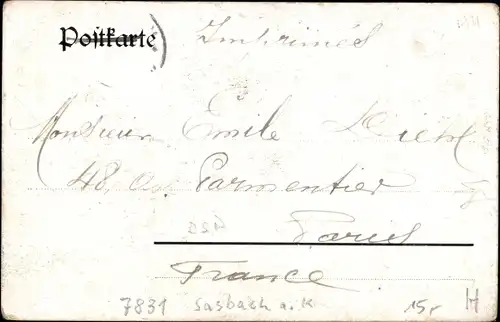 Postkarte Imprimés
Monsieur Emile Diehl
48 Av Parmentier
Paris
France
7831 Sasbach a.K 15,- H